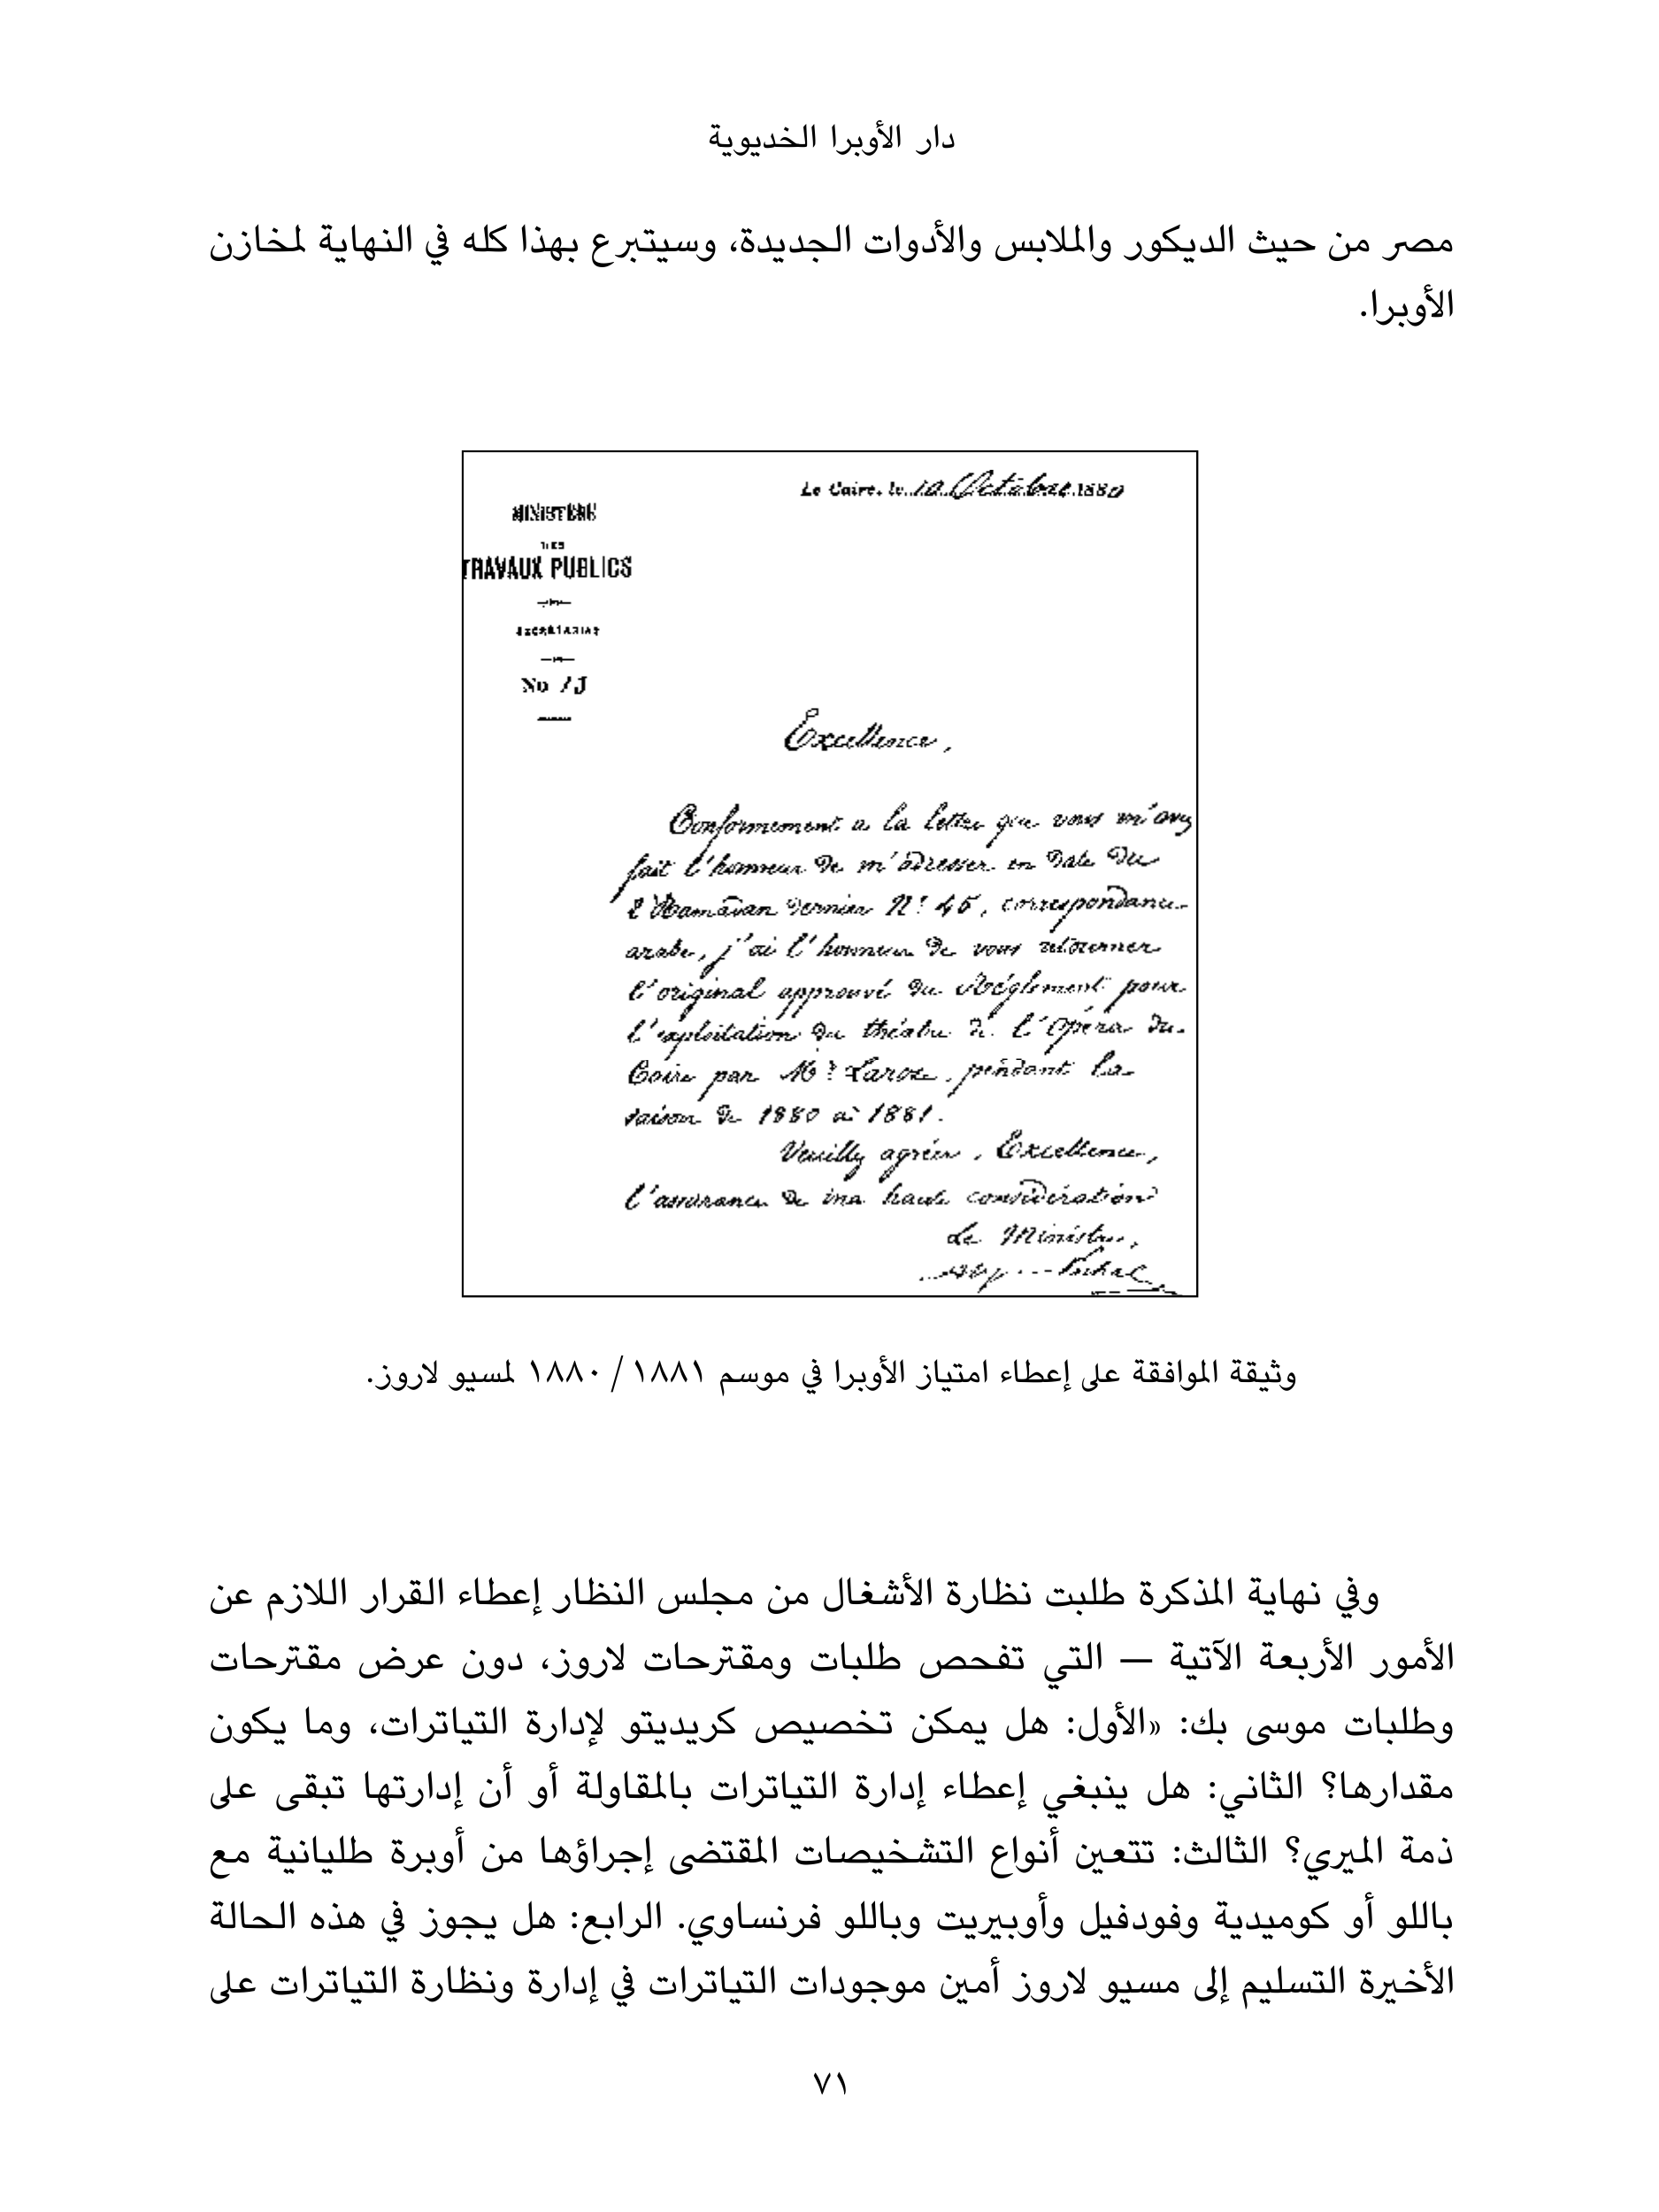 دار الأوبرا الخديوية
مصر من حيث الديكور والملابس والأدوات الجديدة، وسيتبرع بهذا كله في النهاية لمخازن
الأوبرا.
Le Caire, le 10 Octobre 1880
MINISTÈRE
DES
TRAVAUX PUBLICS
SECRÉTARIAT
No
Excellence,
Conformement a la lettre que vous m'avez
fait l'honneur de m'adresser en date du
2 Ramadan dernier N° 45, correspondance
arabe, j'ai l'honneur de vous retourner
l'original approuvé du Réglement pour
l'exploitation du théatre de l'Opéra du
Caire par Mr Larose, pendant la
saison de 1880 à 1881.
Veuillez agréer, Excellence,
l'assurance de ma haute considération
Le Ministre,
وثيقة الموافقة على إعطاء امتياز الأوبرا في موسم ١٨٨١ / ١٨٨٠ لمسيو لاروز.
وفي نهاية المذكرة طلبت نظارة الأشغال من مجلس النظار إعطاء القرار اللازم عن
الأمور الأربعة الآتية — التي تفحص طلبات ومقترحات لاروز، دون عرض مقترحات
وطلبات موسى بك: «الأول: هل يمكن تخصيص كريديتو لإدارة التياترات، وما يكون
مقدارها؟ الثاني: هل ينبغي إعطاء إدارة التياترات بالمقاولة أو أن إدارتها تبقى على
ذمة الميري؟ الثالث: تتعين أنواع التشخيصات المقتضى إجراؤها من أوبرة طليانية مع
باللو أو كوميدية وفودفيل وأوبيريت وباللو فرنساوي. الرابع: هل يجوز في هذه الحالة
الأخيرة التسليم إلى مسيو لاروز أمين موجودات التياترات في إدارة ونظارة التياترات على
٧١